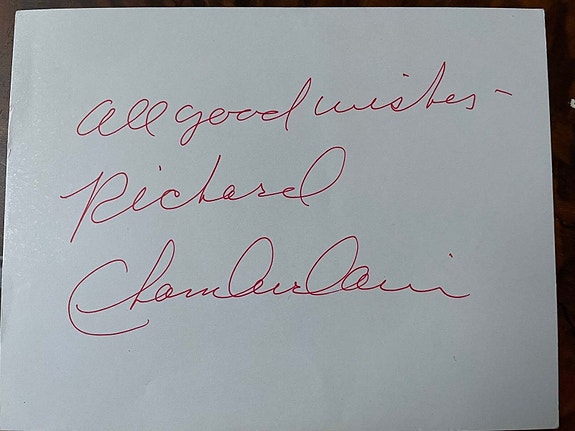 all good wishes -
Richard
Chamberlain